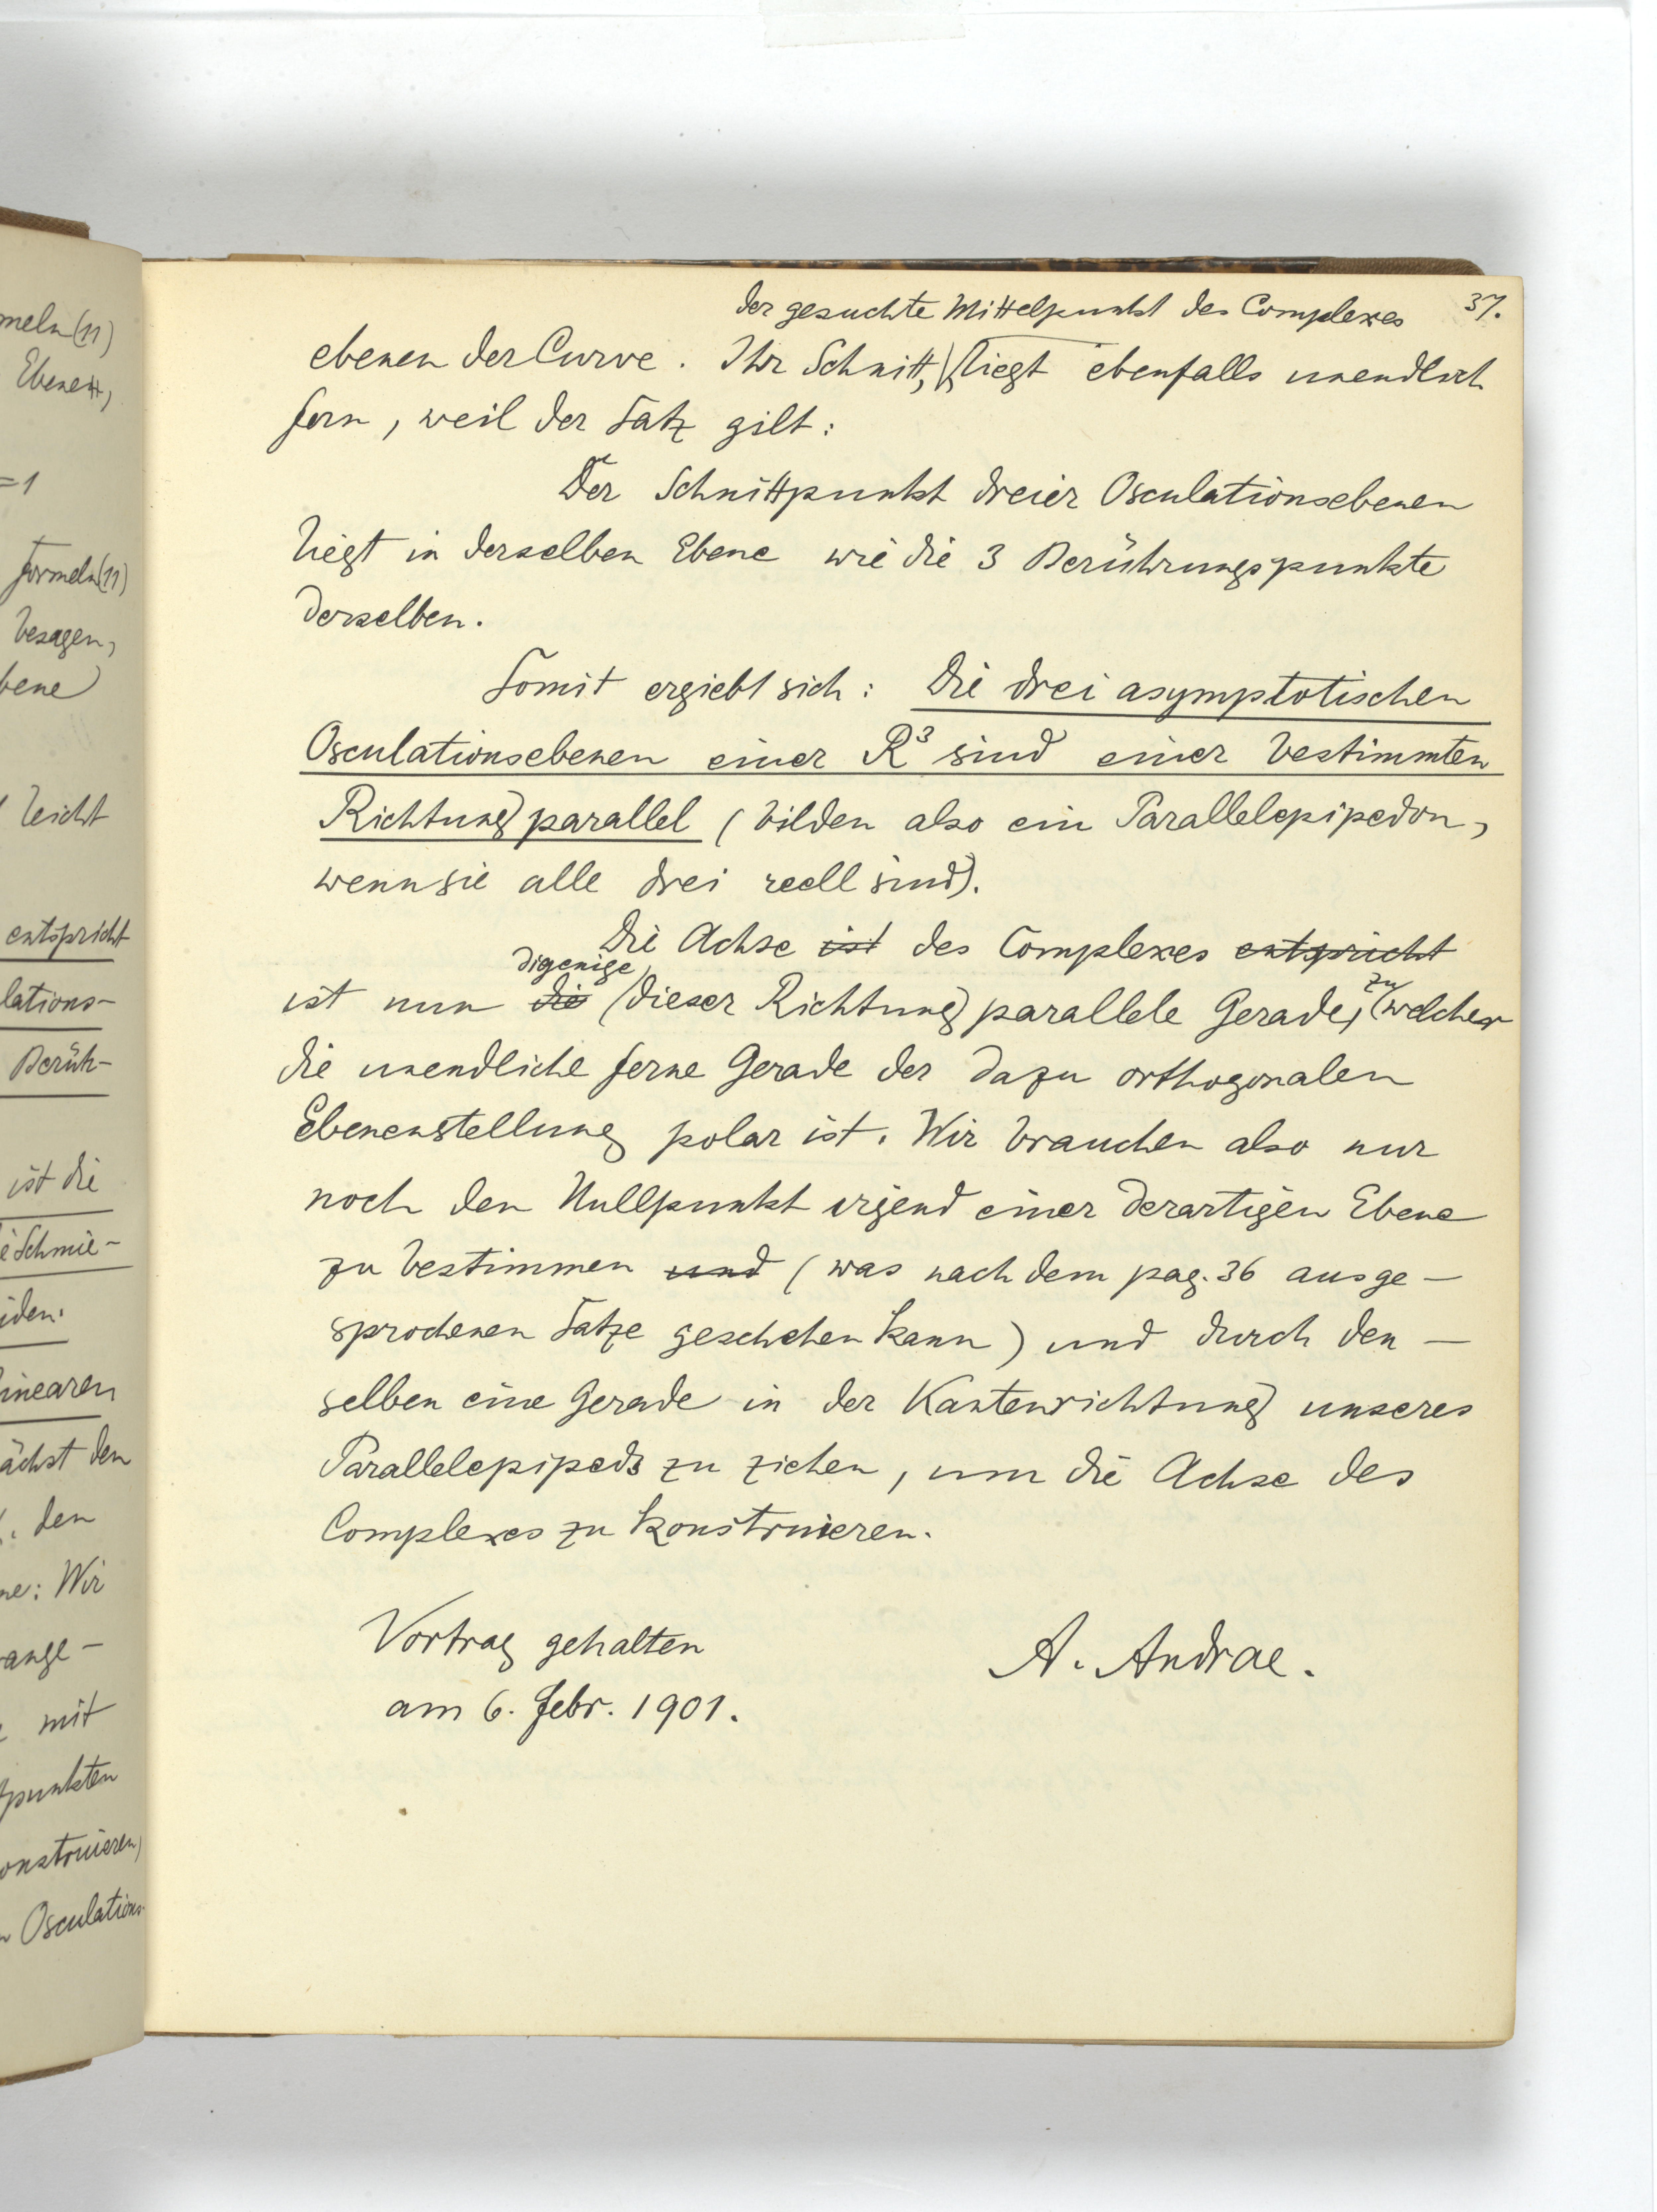 meln(11)
Ebenen,
=1
formeln(11)
besagen,
bene
leicht
entspricht
lations-
Berüh-
ist die
Schmie-
iden.
linearen
ächst den
den
ne: Wir
ange-
mit
punkten
onstruieren,
Osculations-
37.
der gesuchte Mittelpunkt des Complexes
ebenen der Curve. Ihr Schnitt, liegt ebenfalls unendlich
fern, weil der Satz gilt:
Der Schnittpunkt dreier Osculationsebenen
liegt in derselben Ebene wie die 3 Berührungspunkte
derselben.
Somit ergiebt sich: Die drei asymptotischen
Osculationsebenen einer R³ sind einer bestimmten
Richtung parallel (bilden also ein Parallelepipedon,
wenn sie alle drei reell sind).
Die Achse ist des Complexes entspricht
digenige
ist nun die (dieser Richtung parallele Gerade, zu welcher
die unendliche ferne Gerade der dazu orthogonalen
Ebenenstellung polar ist. Wir brauchen also nur
noch den Nullpunkt irgend einer derartigen Ebene
zu bestimmen und (was nach dem pag. 36 ausge-
sprochenen Satze geschehen kann) und durch den-
selben eine Gerade in der Kantenrichtung unseres
Parallelepipeds zu ziehen, um die Achse des
Complexes zu konstruieren.
Vortrag gehalten
am 6. Febr. 1901.
A. Andrae.